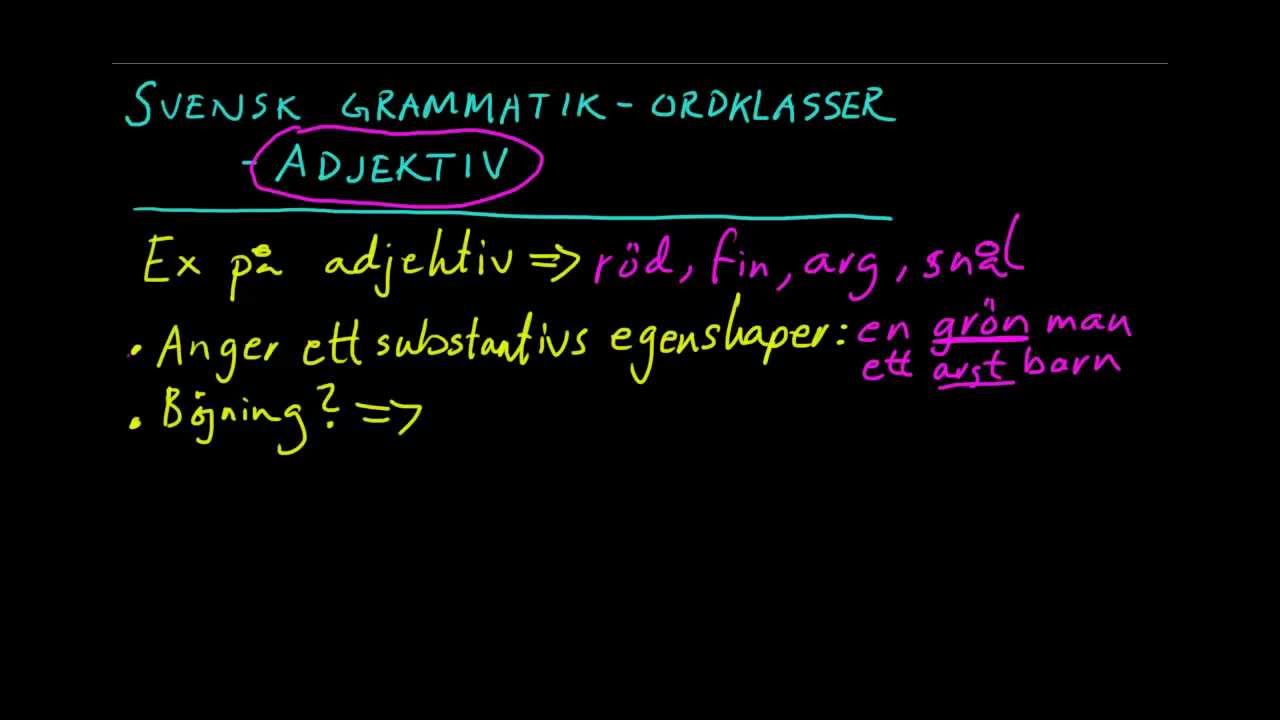 SVENSK GRAMMATIK - ORDKLASSER
- ADJEKTIV
Ex på adjektiv => röd, fin, arg, snål
• Anger ett substantivs egenskaper: en grön man
ett argt barn
• Böjning? =>